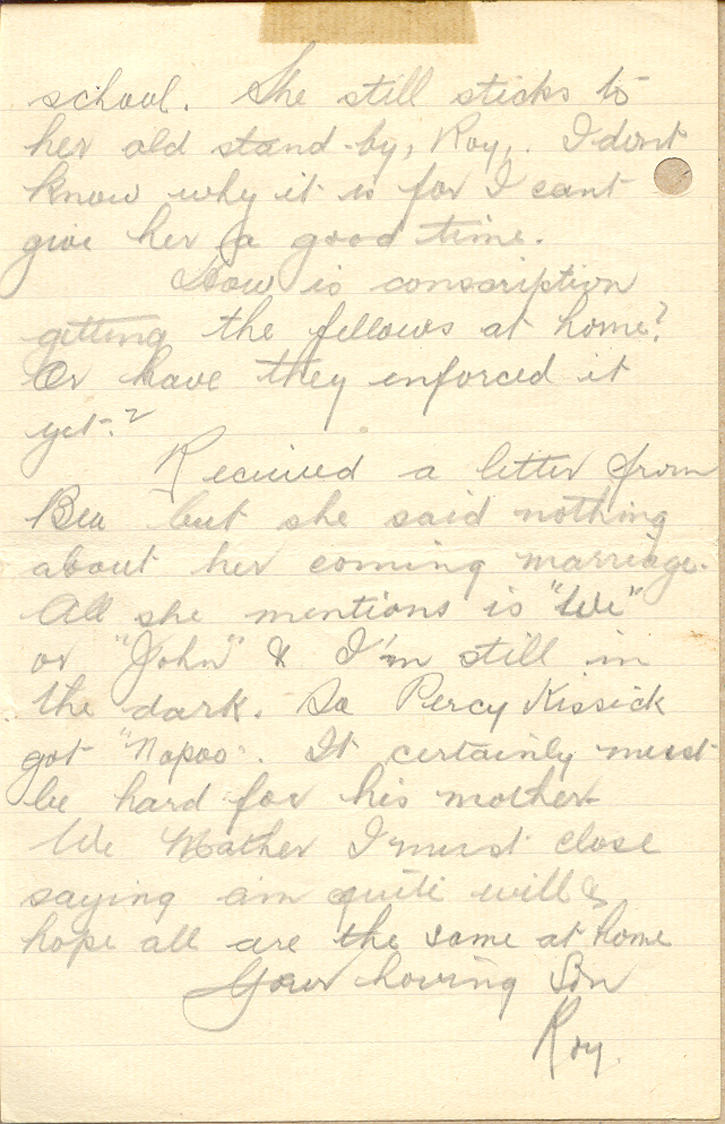 school. She still sticks to
her old stand-by, Roy,. I dont
know why it is for I cant
give her a good time.
How is conscription
getting the fellows at home?
Or have they enforced it
yet.?
Recieved a letter from
Bea but she said nothing
about her coming marriage.
All she mentions is "We"
or "John" & I'm still in
the dark. So Percy Kissick
got "Napoo". It certainly must
be hard for his mother
We Mother I must close
saying am quite well &
hope all are the same at home
Your loving Son
Roy.